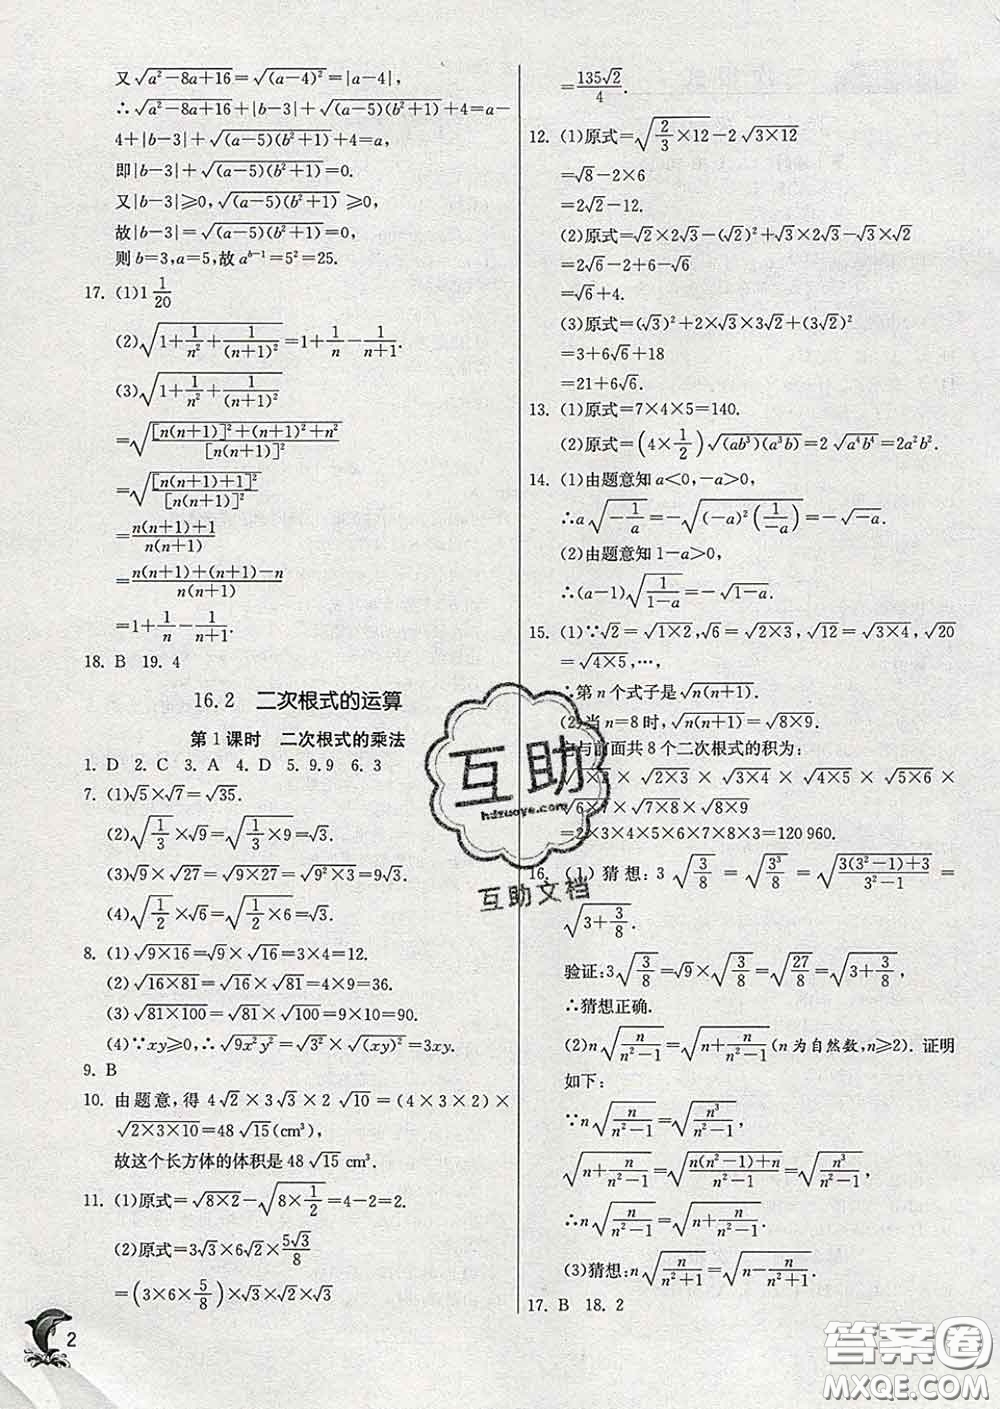 又√(a²-8a+16)=√((a-4)²)=|a-4|,
∴√(a²-8a+16)+|b-3|+√((a-5)(b²+1))+4=a-
4+|b-3|+√((a-5)(b²+1))+4=a,
即|b-3|+√((a-5)(b²+1))=0.
又|b-3|⩾0,√((a-5)(b²+1))⩾0,
故|b-3|=√((a-5)(b²+1))=0,
则b=3,a=5,故a^(b-1)=5²=25.
17. (1)1 1/20
(2)√(1+1/n²+1/(n+1)²)=1+1/n-1/(n+1).
(3)√(1+1/n²+1/(n+1)²)
=√(([n(n+1)]²+(n+1)²+n²)/[n(n+1)]²)
=√([n(n+1)+1]²/[n(n+1)]²)
=(n(n+1)+1)/(n(n+1))
=(n(n+1)+(n+1)-n)/(n(n+1))
=1+1/n-1/(n+1).
18. B 19. 4
16.2 二次根式的运算
第1课时 二次根式的乘法
1. D 2. C 3. A 4. D 5. 9.9 6. 3
7. (1)√5×√7=√35.
(2)√(1/3)×√9=√(1/3×9)=√3.
(3)√9×√27=√(9×27)=√(9²×3)=9√3.
(4)√(1/2)×√6=√(1/2×6)=√3.
8. (1)√(9×16)=√9×√16=3×4=12.
(2)√(16×81)=√16×√81=4×9=36.
(3)√(81×100)=√81×√100=9×10=90.
(4)∵xy⩾0,∴√(9x²y²)=√(3²)×√((xy)²)=3xy.
9. B
10. 由题意,得4√2×3√3×2√10=(4×3×2)×
√(2×3×10)=48√15(cm³),
故这个长方体的体积是48√15 cm³.
11. (1)原式=√(8×2)-√(8×1/2)=4-2=2.
(2)原式=3√3×6√2×5√3/8
=(3×6×5/8)√3×√2×√3
2
=135√2/4.
12. (1)原式=√(2/3×12)-2√(3×12)
=√8-2×6
=2√2-12.
(2)原式=√2×2√3-(√2)²+√3×2√3-√3×√2
=2√6-2+6-√6
=√6+4.
(3)原式=(√3)²+2×√3×3√2+(3√2)²
=3+6√6+18
=21+6√6.
13. (1)原式=7×4×5=140.
(2)原式=(4×1/2)√((ab³)(a³b))=2√(a⁴b⁴)=2a²b².
14. (1)由题意知a<0,-a>0,
∴a√(-1/a)=-√((-a)²(1/-a))=-√(-a).
(2)由题意知1-a>0,
∴(a-1)√(1/(1-a))=-√(1-a).
15. (1)∵√2=√(1×2),√6=√(2×3),√12=√(3×4),√20
=√(4×5),…,
∴第n个式子是√(n(n+1)).
(2)当n=8时,√(n(n+1))=√(8×9).
它与前面共8个二次根式的积为:
√(1×2)×√(2×3)×√(3×4)×√(4×5)×√(5×6)×
√(6×7)×√(7×8)×√(8×9)
=2×3×4×5×6×7×8×3=120 960.
16. (1)猜想:3√(3/8)=√(3³/8)=√((3(3²-1)+3)/(3²-1))=
√(3+3/8).
验证:3√(3/8)=√9×√(3/8)=√(27/8)=√(3+3/8),
∴猜想正确.
(2)n√(n/(n²-1))=√(n+n/(n²-1))(n为自然数,n⩾2). 证明
如下:
∵n√(n/(n²-1))=√(n³/(n²-1)),
√(n+n/(n²-1))=√((n(n²-1)+n)/(n²-1))=√(n³/(n²-1)),
∴n√(n/(n²-1))=√(n+n/(n²-1)).
(3)猜想:n√(n/(n²+1))=√(n-n/(n²+1)).
17. B 18. 2
互助
hdzuoye.com
互助文档
答案圈
MXQE.COM